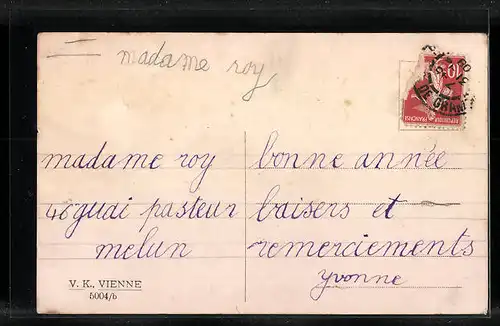 madame roy
madame roy
46 quai pasteur
melun
V. K., VIENNE
5004/b
bonne année
baisers et
remerciements
yvonne
10
REPUBLIQUE FRANÇAISE
DE GRAM